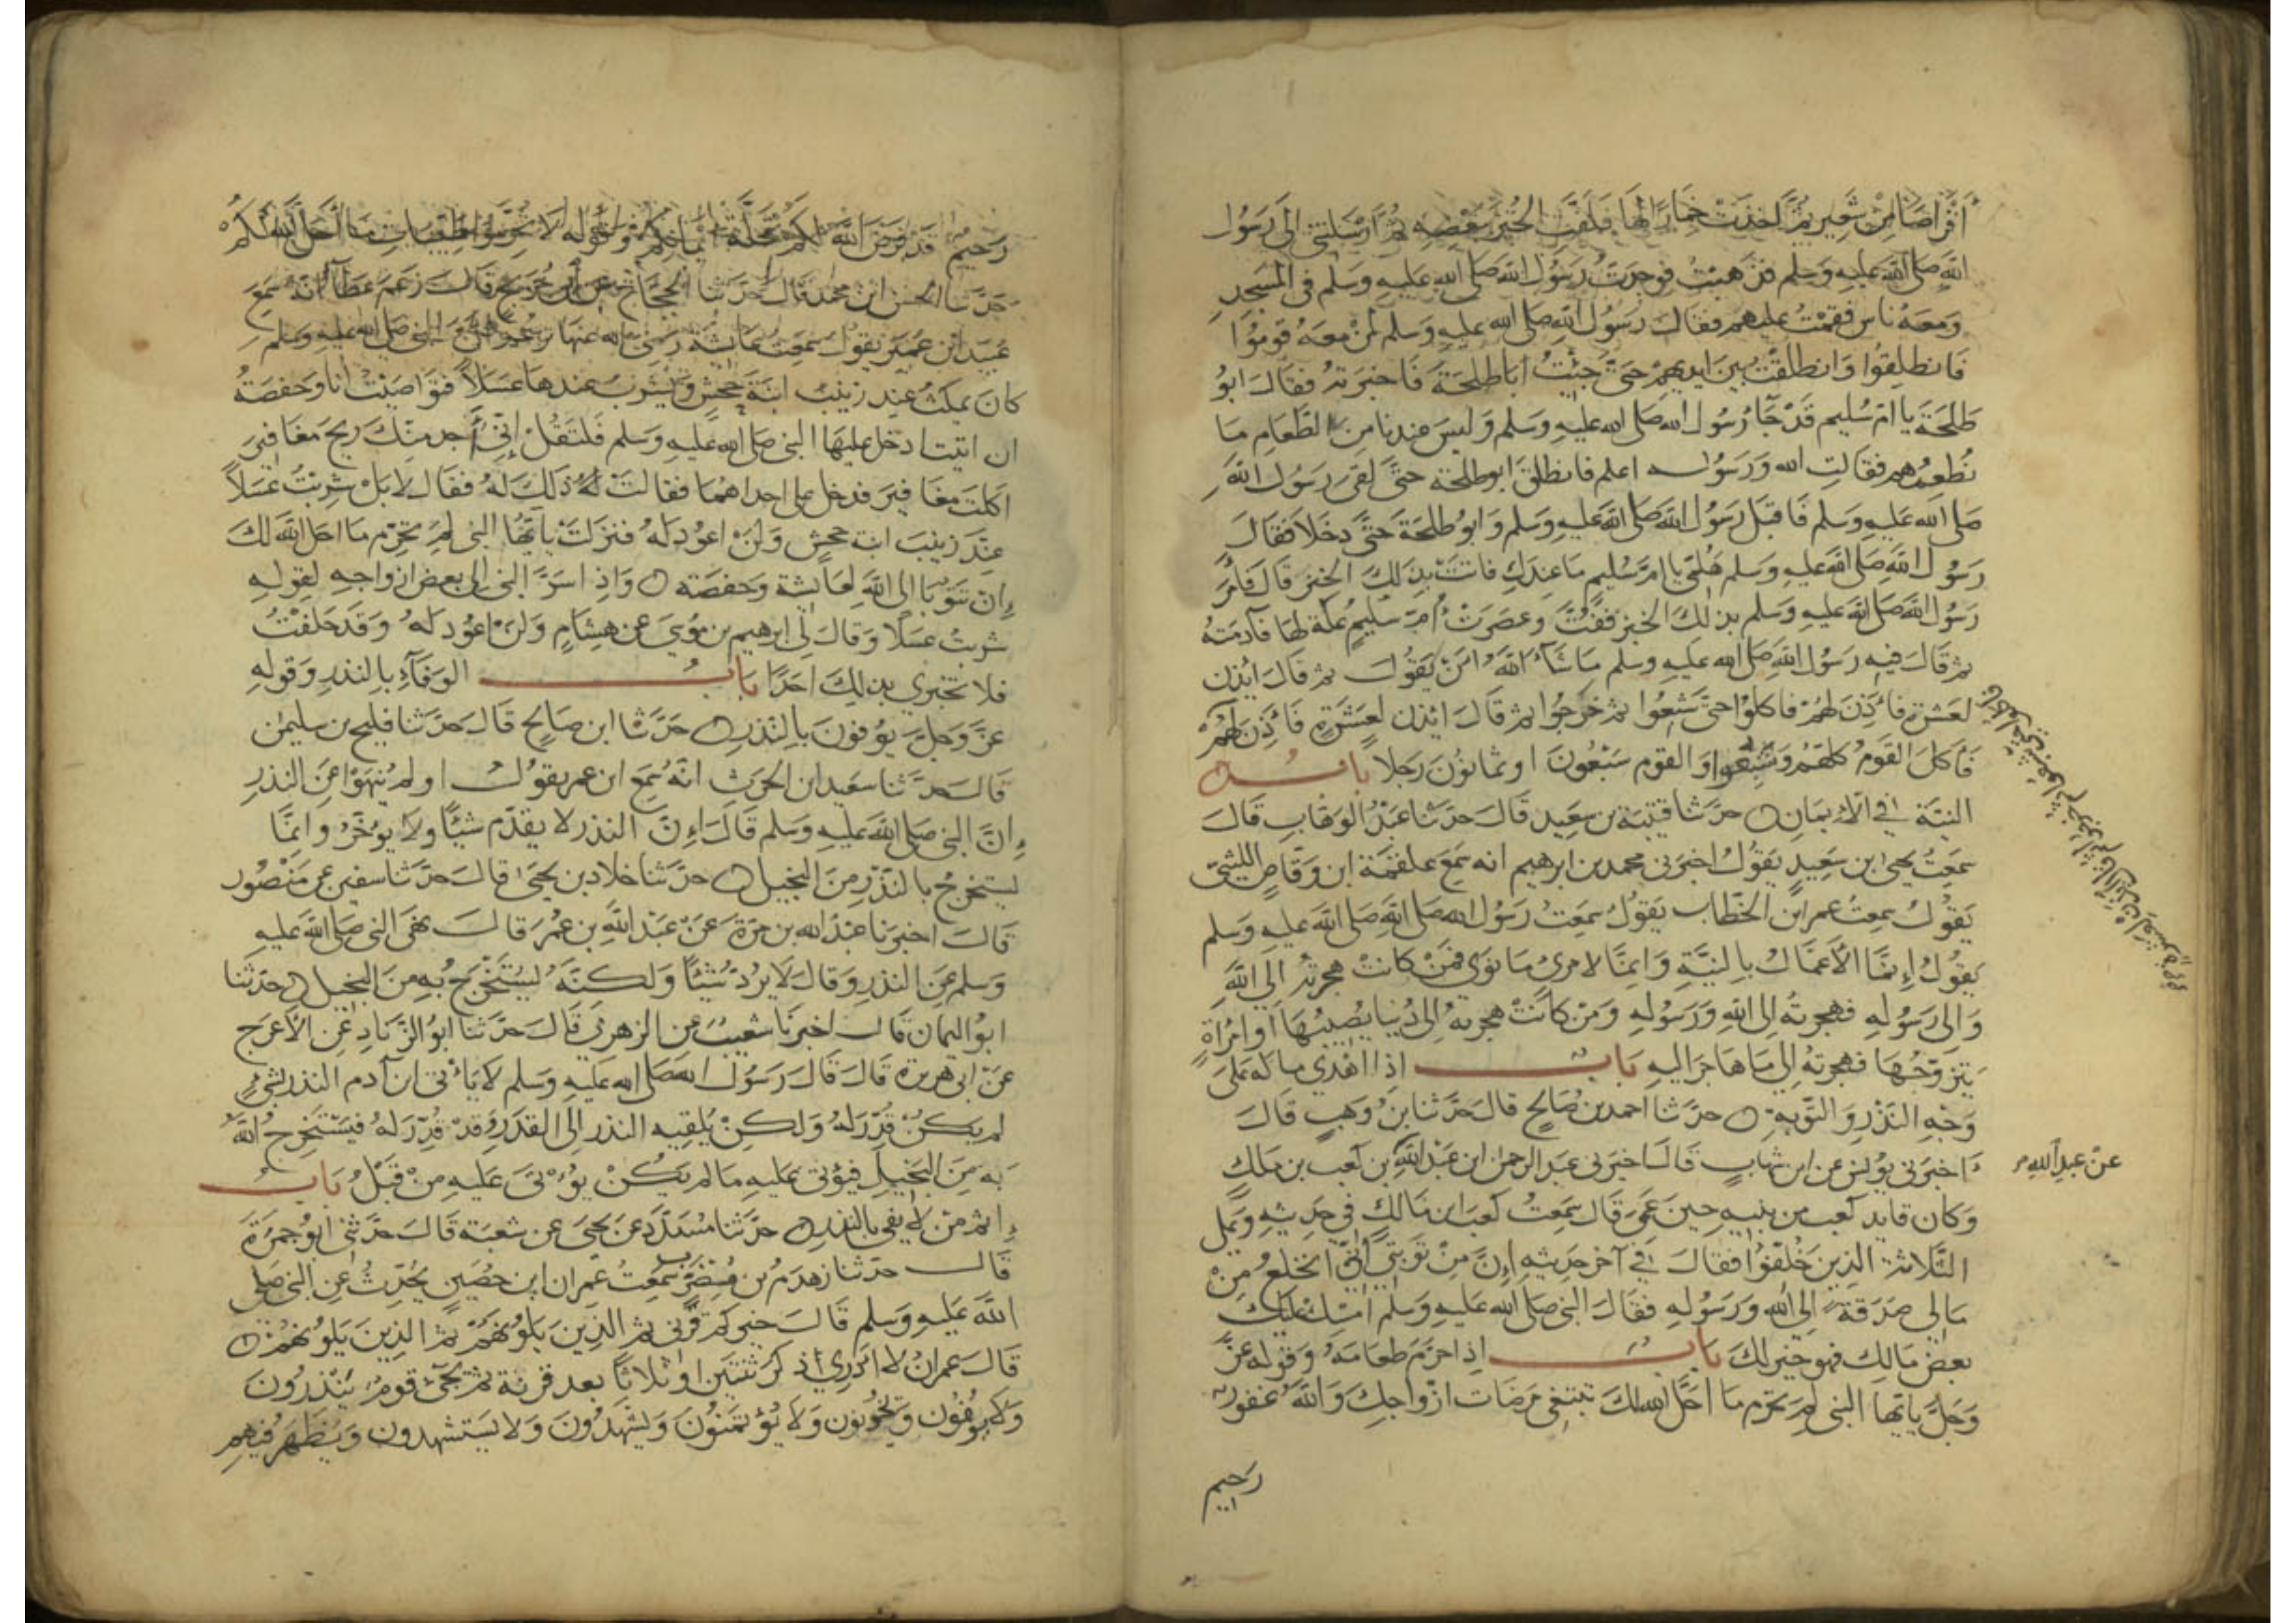 أقراصا من شعير ثم أخذت خمارا لها فلفت الخبز ببعضه ثم أرسلتني إلى رسول
الله صلى الله عليه وسلم فذهبت فوجدت رسول الله صلى الله عليه وسلم في المسجد
ومعه ناس فقمت عليهم فقال رسول الله صلى الله عليه وسلم لمن معه قوموا
فانطلقوا وانطلقت بين ايديهم حتى جئت أبا طلحة فاخبرته فقال ابو
طلحة يا ام سليم قد جآ رسول الله صلى الله عليه وسلم وليس عندنا من الطعام ما
نطعمهم فقالت الله ورسوله اعلم فانطلق ابو طلحة حتى لقى رسول الله
صلى الله عليه وسلم فاقبل رسول الله صلى الله عليه وسلم وابو طلحة حتى دخلا فقال
رسول الله صلى الله عليه وسلم هلمي يا ام سليم ما عندك فاتت بذلك الخبز قال فأمر
رسول الله صلى الله عليه وسلم بذلك الخبز ففت وعصرت أم سليم عكة لها فآدمته
ثم قال فيه رسول الله صلى الله عليه وسلم ما شاء الله ان يقول ثم قال ائذن
لعشرة فأذن لهم فاكلوا حتى شبعوا ثم خرجوا ثم قال ائذن لعشرة فأذن لهم
فأكل القوم كلهم وشبعوا والقوم سبعون او ثمانون رجلا باب
النية في الايمان حدثنا قتيبة بن سعيد قال حدثنا عبد الوهاب قال
سمعت يحيى ابن سعيد يقول اخبرني محمد بن ابرهيم انه سمع علقمة ابن وقاص الليثي
يقول سمعت عمر ابن الخطاب يقول سمعت رسول الله صلى الله صلى الله عليه وسلم
يقول إنما الأعمال بالنية وإنما لامرئ ما نوى فمن كانت هجرته الى الله
والى رسوله فهجرته إلى الله ورسوله ومن كانت هجرته إلى دنيا يصيبها أو امرأة
يتزوجها فهجرته إلى ما هاجر اليه باب اذا اهدي ماله على
وجه النذر والتوبة حدثنا احمد بن صالح قال حدثنا بن وهب قال
أخبرني يونس عن ابن شهاب قال اخبرني عبد الرحمن ابن عبد الله بن كعب بن ملك
عن عبد الله
وكان قايد كعب من بنيه حين عمي قال سمعت كعب ابن مالك في حديثه وعلى
الثلاثة الذين خلفوا فقال في آخر حديثه إن من توبتي أني انخلع من
مالى صدقة إلى الله ورسوله فقال النبي صلى الله عليه وسلم امسك عليك
بعض مالك فهو خير لك باب إذا حرم طعامه وقوله عز
وجل ياتها النبي لم تحرم ما احل الله لك تبتغي مرضات ازواجك والله غفور
رحيم
رحيم قد فرض الله لكم تحلة ايمانكم وقوله لا تحرموا طيبات ما احل الله لكم
حدثنا الحسن ابن محمد قال حدثنا الحجاج عن ابن جريج قال زعم عطآ أنه سمع
عبيد ابن عمير يقول سمعت عائشة رضى الله عنها تزعم ان النبي صلى الله عليه وسلم
كان يمكث عند زينب ابنة جحش ويشرب عندها عسلا فتواصيت أنا وحفصة
ان ايتنا دخل عليها النبي صلى الله عليه وسلم فلتقل إني أجد منك ريح مغافير
اكلت مغافير فدخل على احداهما فقالت له ذلك له فقال لا بل شربت عسلا
عند زينب ابنة جحش ولن اعود له فنزلت ياتها النبي لم تحرم ما احل الله لك
إن تتوبا إلى الله لعايشة وحفصة وإذ اسر النبي الى بعض ازواجه لقوله
شربت عسلا وقال لي ابرهيم بن موسى عن هشام ولن اعود له وقد حلفت
فلا تخبري بذلك احدا باب الوفآء بالنذر وقوله
عز وجل يوفون بالنذر حدثنا ابن صالح قال حدثنا فليح بن سليمن
قال حدثنا سعيد ابن الحرث انه سمع ابن عمر يقول اولم ينهوا عن النذر
إن النبي صلى الله عليه وسلم قال إن النذر لا يقدم شيئا ولا يؤخر وانما
يستخرج بالنذر من البخيل حدثنا خلاد بن يحيى قال حدثنا سفين عن منصور
قال اخبرنا عبد الله بن مرة عن عبد الله بن عمر قال نهى النبي صلى الله عليه
وسلم عن النذر وقال لا يرد شيئا ولكنه يستخرج به من البخيل حدثنا
ابو اليمان قال اخبرنا شعيب عن الزهري قال حدثنا ابو الزناد عن الأعرج
عن ابى هريرة قال قال رسول الله صلى الله عليه وسلم لا يأتي ابن آدم النذر بشيء
لم يكن قدر له ولكن يلقيه النذر إلى القدر وقد قدر له فيستخرج الله
به من البخيل فيؤتى عليه ما لم يكن يؤتى عليه من قبل باب
إثم من لا يفي بالنذر حدثنا مسدد عن يحيى عن شعبة قال حدثني أبو جمرة
قال حدثنا زهدم بن مضرب سمعت عمران ابن حصين يحدث عن النبي صلى
الله عليه وسلم قال خيركم قرني ثم الذين يلونهم ثم الذين يلونهم
قال عمران لا ادري اذكر ثنتين او ثلاثا بعد قرنه ثم يجئ قوم ينذرون
ولا يوفون ويخونون ولا يؤتمنون ويشهدون ولا يستشهدون ويظهر فيهم